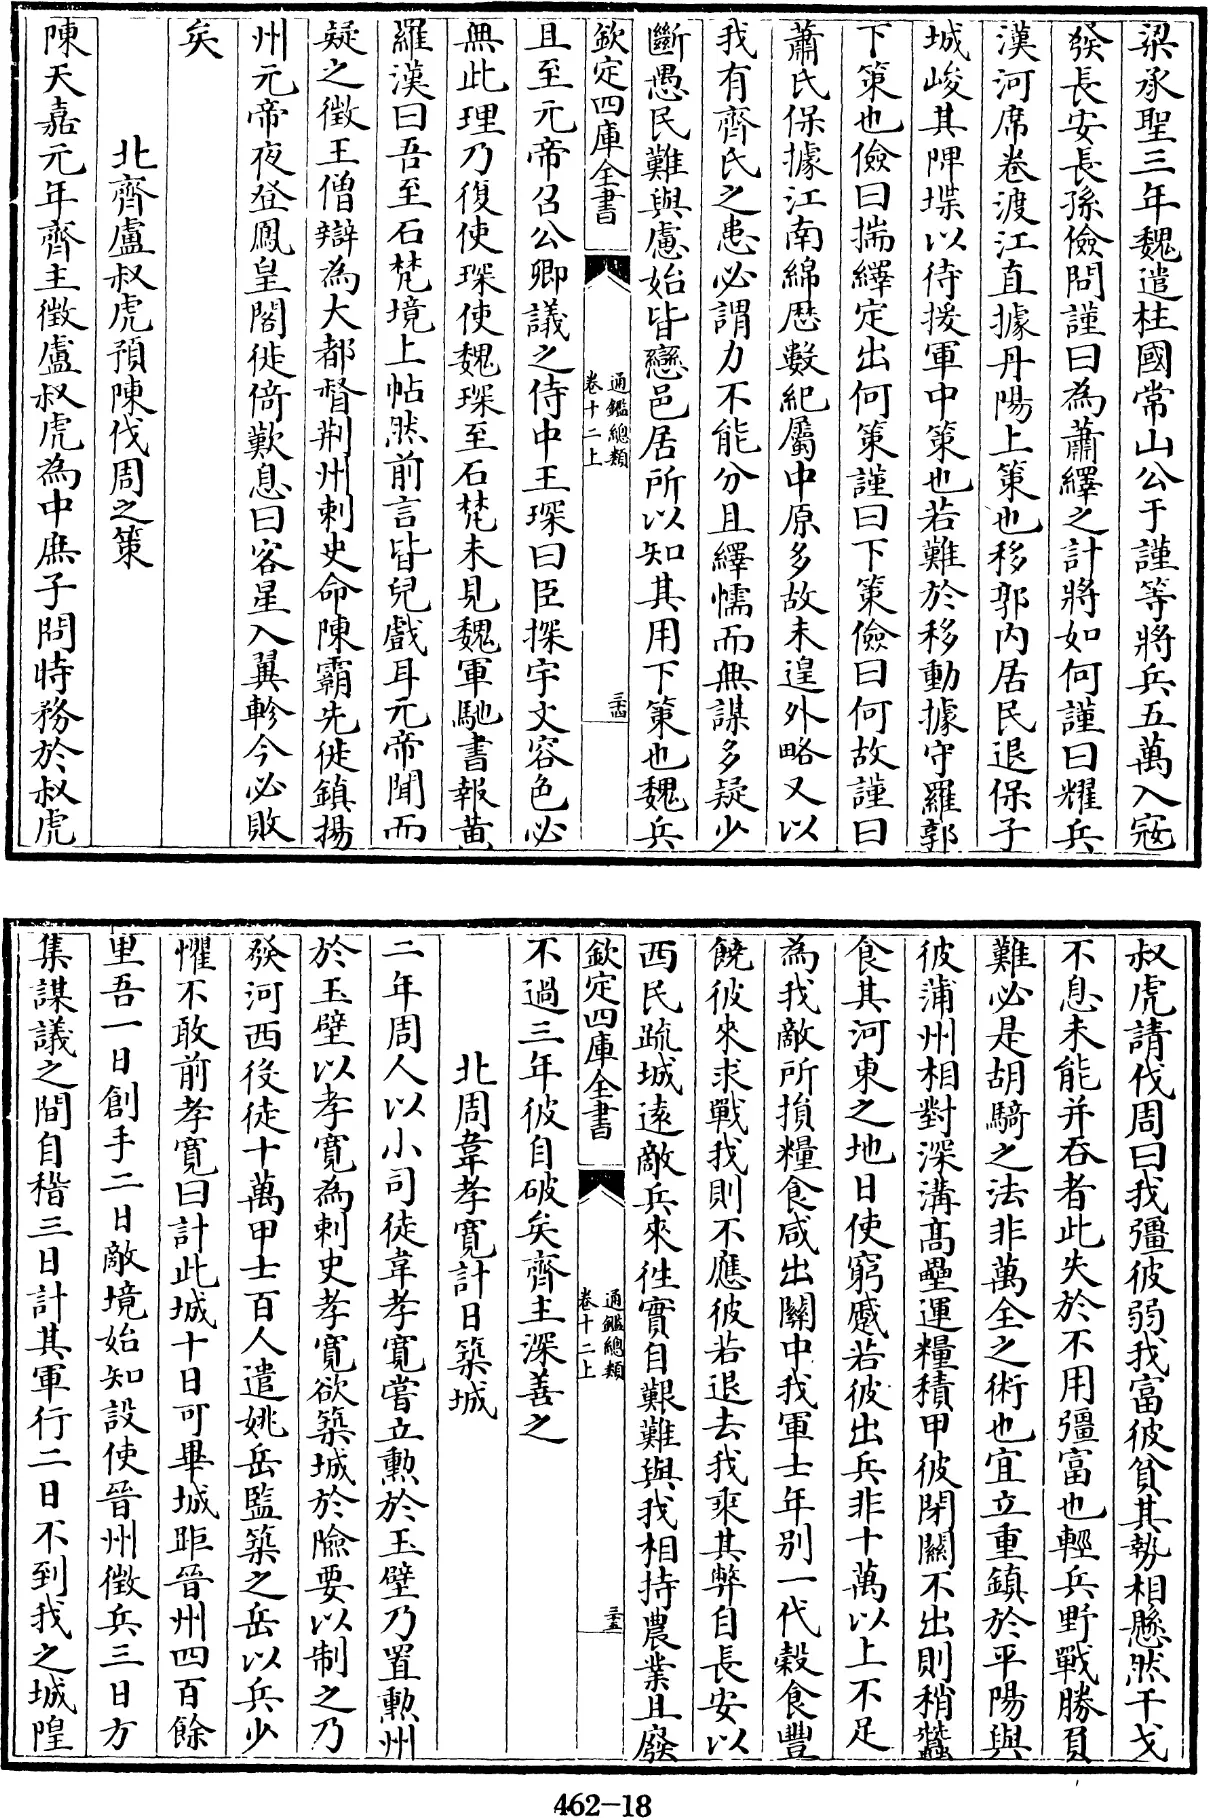 梁承聖三年魏遣柱國常山公于謹等將兵五萬入宼
發長安長孫儉問謹曰為蕭繹之計將如何謹曰耀兵
漢沔席卷渡江直據丹陽上策也移郭内居民退保子
城峻其陴堞以待援軍中策也若難於移動據守羅郭
下策也儉曰揣繹定出何策謹曰下策儉曰何故謹曰
蕭氏保據江南綿歴數紀屬中原多故未遑外略又以
我有齊氏之患必謂力不能分且繹懦而無謀多疑少
斷愚民難與慮始皆戀邑居所以知其用下策也魏兵
欽定四庫全書
通鑑總類
卷十二上
三十四
且至元帝召公卿議之侍中王琛曰臣揆宇文容色必
無此理乃復使琛使魏琛至石梵未見魏軍馳書報黄
羅漢曰吾至石梵境上帖然前言皆兒戲耳元帝聞而
疑之徵王僧辯為大都督荆州刺史命陳霸先徙鎮揚
州元帝夜登鳳皇閣徙倚歎息曰客星入翼軫今必敗
矣
北齊盧叔虎預陳伐周之策
陳天嘉元年齊主徵盧叔虎為中庶子問時務於叔虎
叔虎請伐周曰我彊彼弱我富彼貧其勢相懸然干戈
不息未能并吞者此失於不用彊富也輕兵野戰勝負
難必是胡騎之法非萬全之術也宜立重鎮於平陽與
彼蒲州相對深溝高壘運糧積甲彼閉關不出則稍蠶
食其河東之地日使窮蹙若彼出兵非十萬以上不足
為我敵所損糧食咸出關中我軍士年别一代穀食豐
饒彼來求戰我則不應彼若退去我乘其弊自長安以
西民疏城遠敵兵來徃實自艱難與我相持農業且廢
欽定四庫全書
通鑑總類
卷十二上
三十五
不過三年彼自破矣齊主深善之
北周韋孝寛計日築城
二年周人以小司徒韋孝寛嘗立勲於玉壁乃置勲州
於玉壁以孝寛為刺史孝寛欲築城於險要以制之乃
發河西役徒十萬甲士百人遣姚岳監築之岳以兵少
懼不敢前孝寛曰計此城十日可畢城距晉州四百餘
里吾一日創手二日敵境始知設使晉州徵兵三日方
集謀議之間自稽三日計其軍行二日不到我之城隍
462-18